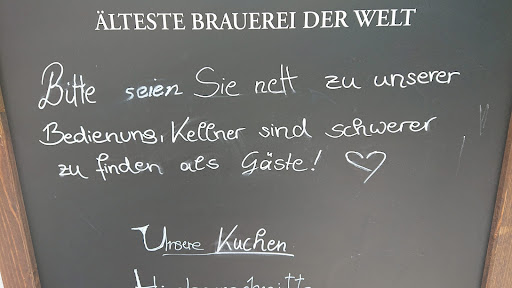 ÄLTESTE BRAUEREI DER WELT
Bitte seien Sie nett zu unserer
Bedienung, Kellner sind schwerer
zu finden als Gäste! ♡
Unsere Kuchen